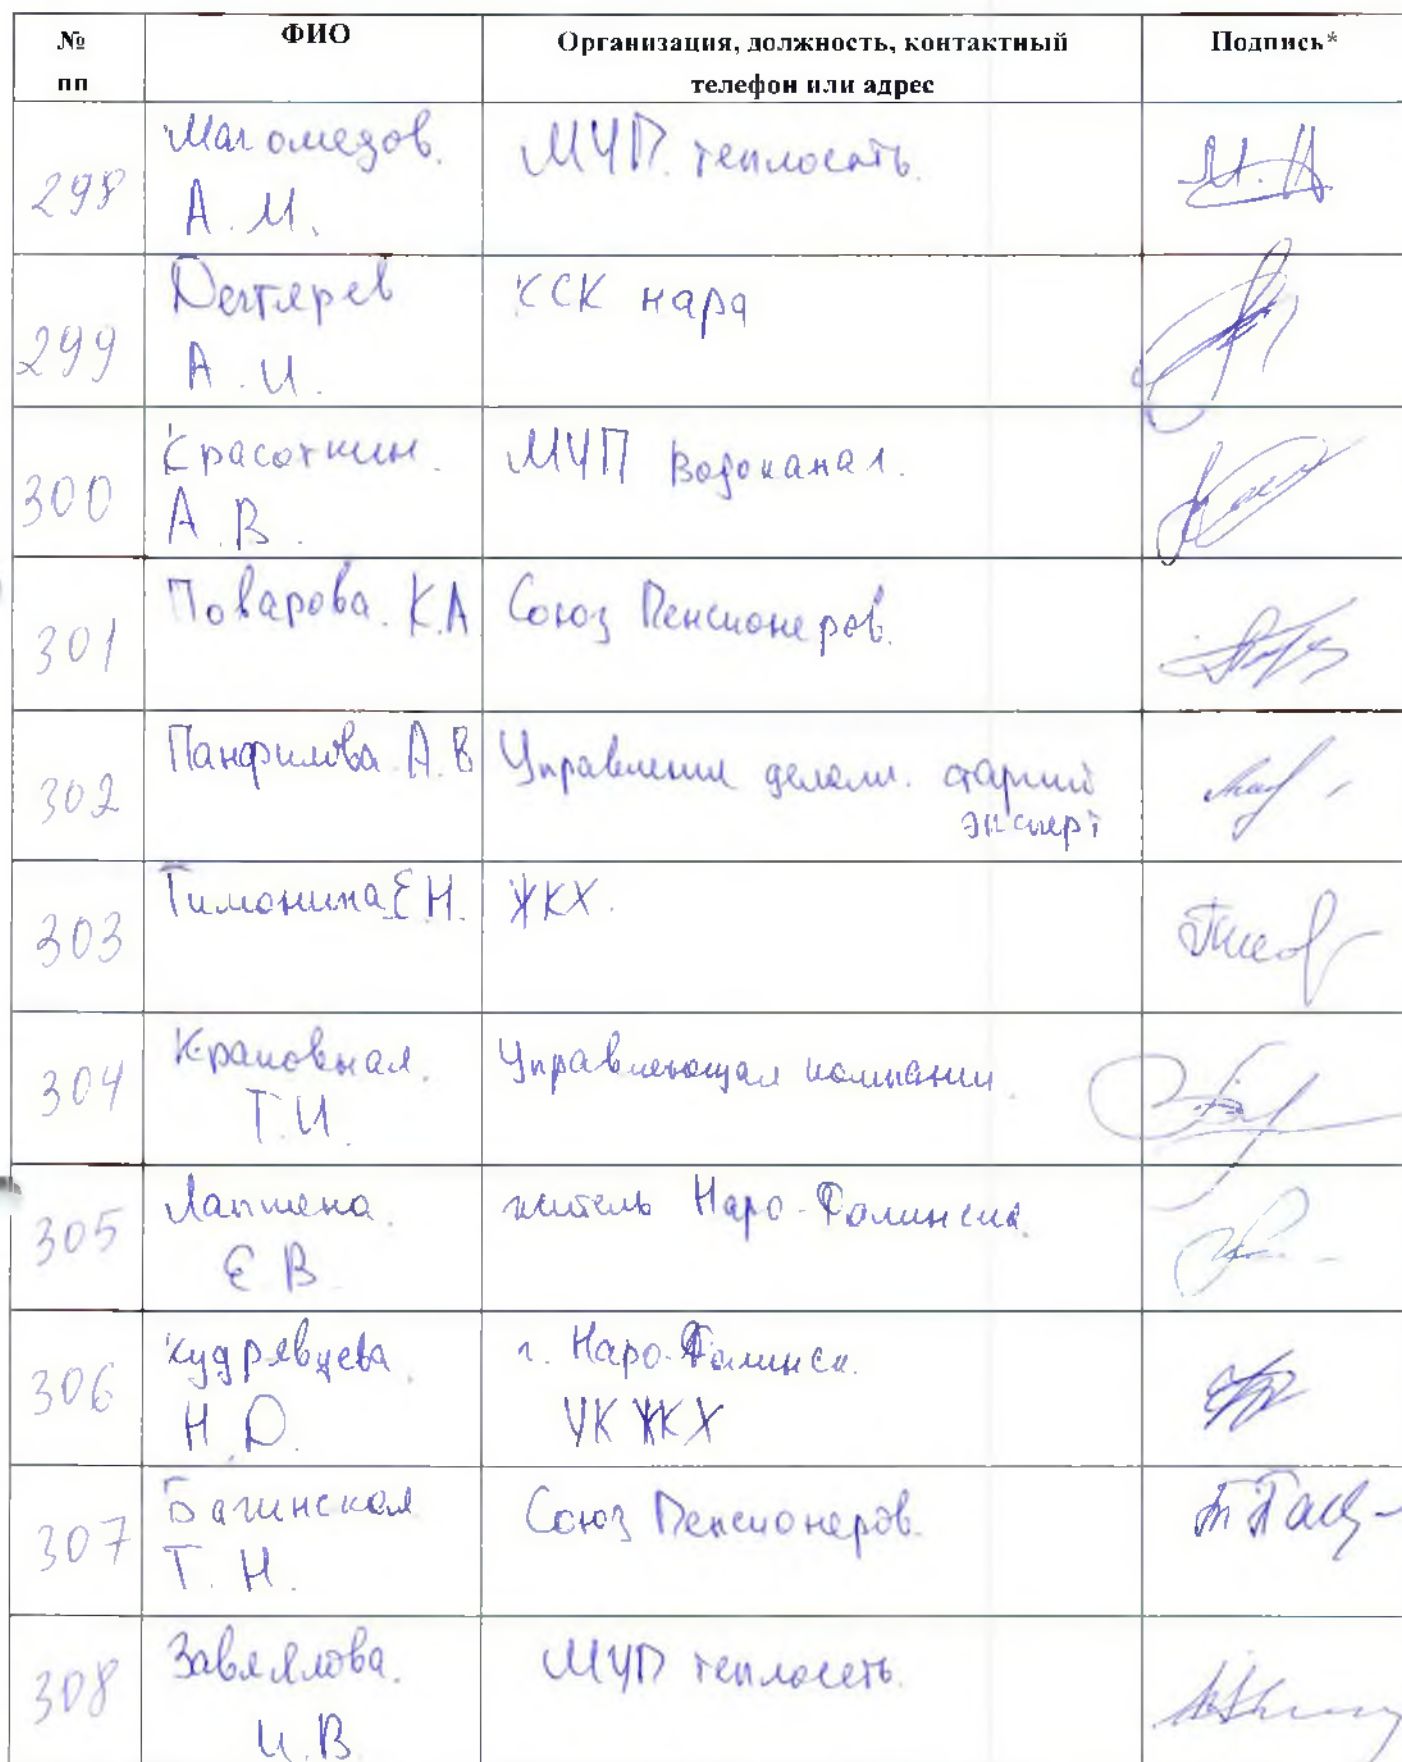 № пп ФИО Организация, должность, контактный телефон или адрес Подпись*
298 Магомедов. А.М. МУП теплосеть.
299 Дегтярев А.И. КСК нара
300 Красоткин. А.В. МУП Водоканал.
301 Поварова. К.А Союз Пенсионеров.
302 Панфилова А.В Управления делами. старший эксперт
303 Тимонина Е Н. ЖКХ.
304 Т.И. Управляющая компании.
305 Лапшена. Е В. житель Наро-Фоминска.
306 Кудрявцева Н.D. г. Наро-Фоминск. УК ЖКХ
307 Багинская Т. Н. Союз Пенсионеров.
308 Завялова. И.В МУП теплосеть.